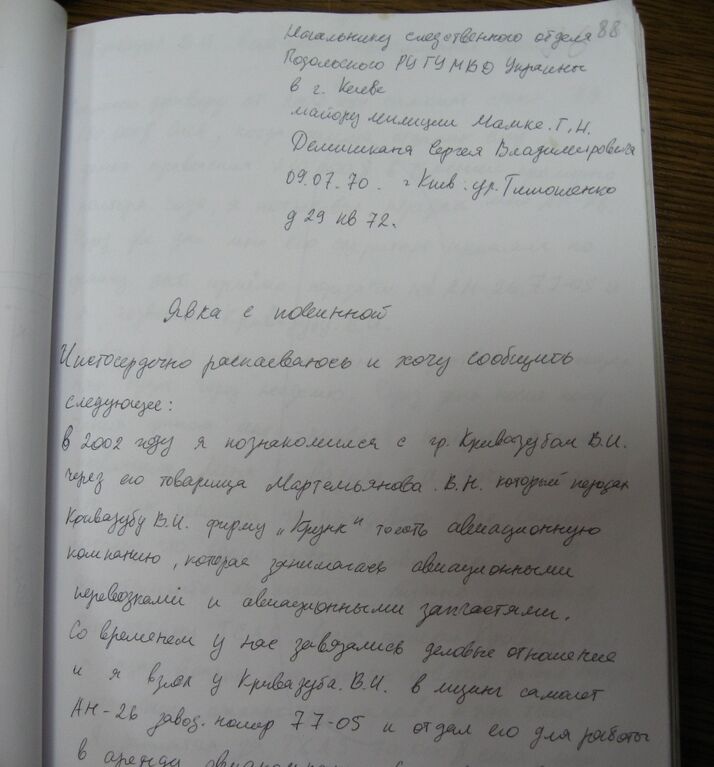 Начальнику следственного отдела 88
Подольского РУ ГУ МВД Украины
в г. Киеве
майору милиции Мамке. Г. Н.
Демишкана Сергея Владимировича
09.07.70. г Киев. ул. Тимошенко
д 29 кв 72.
Явка с повинной
Чистосердечно раскаеваюсь и хочу сообщить
следующее:
в 2002 году я познакомился с гр. Кривазубом В.И.
через его товарища Мартемьянова. В.Н. который передал
Кривазубу В.И. фирму „Крунк" тоесть авиационную
компанию, которая занималась авиационными
перевозками и авиационными запчастями.
Со временем у нас завязались деловые отношение
и я взял у Кривазуба. В.И. в лизинг самолет
АН-26 завод. номер 77-05 и отдал его для работы
в аренду